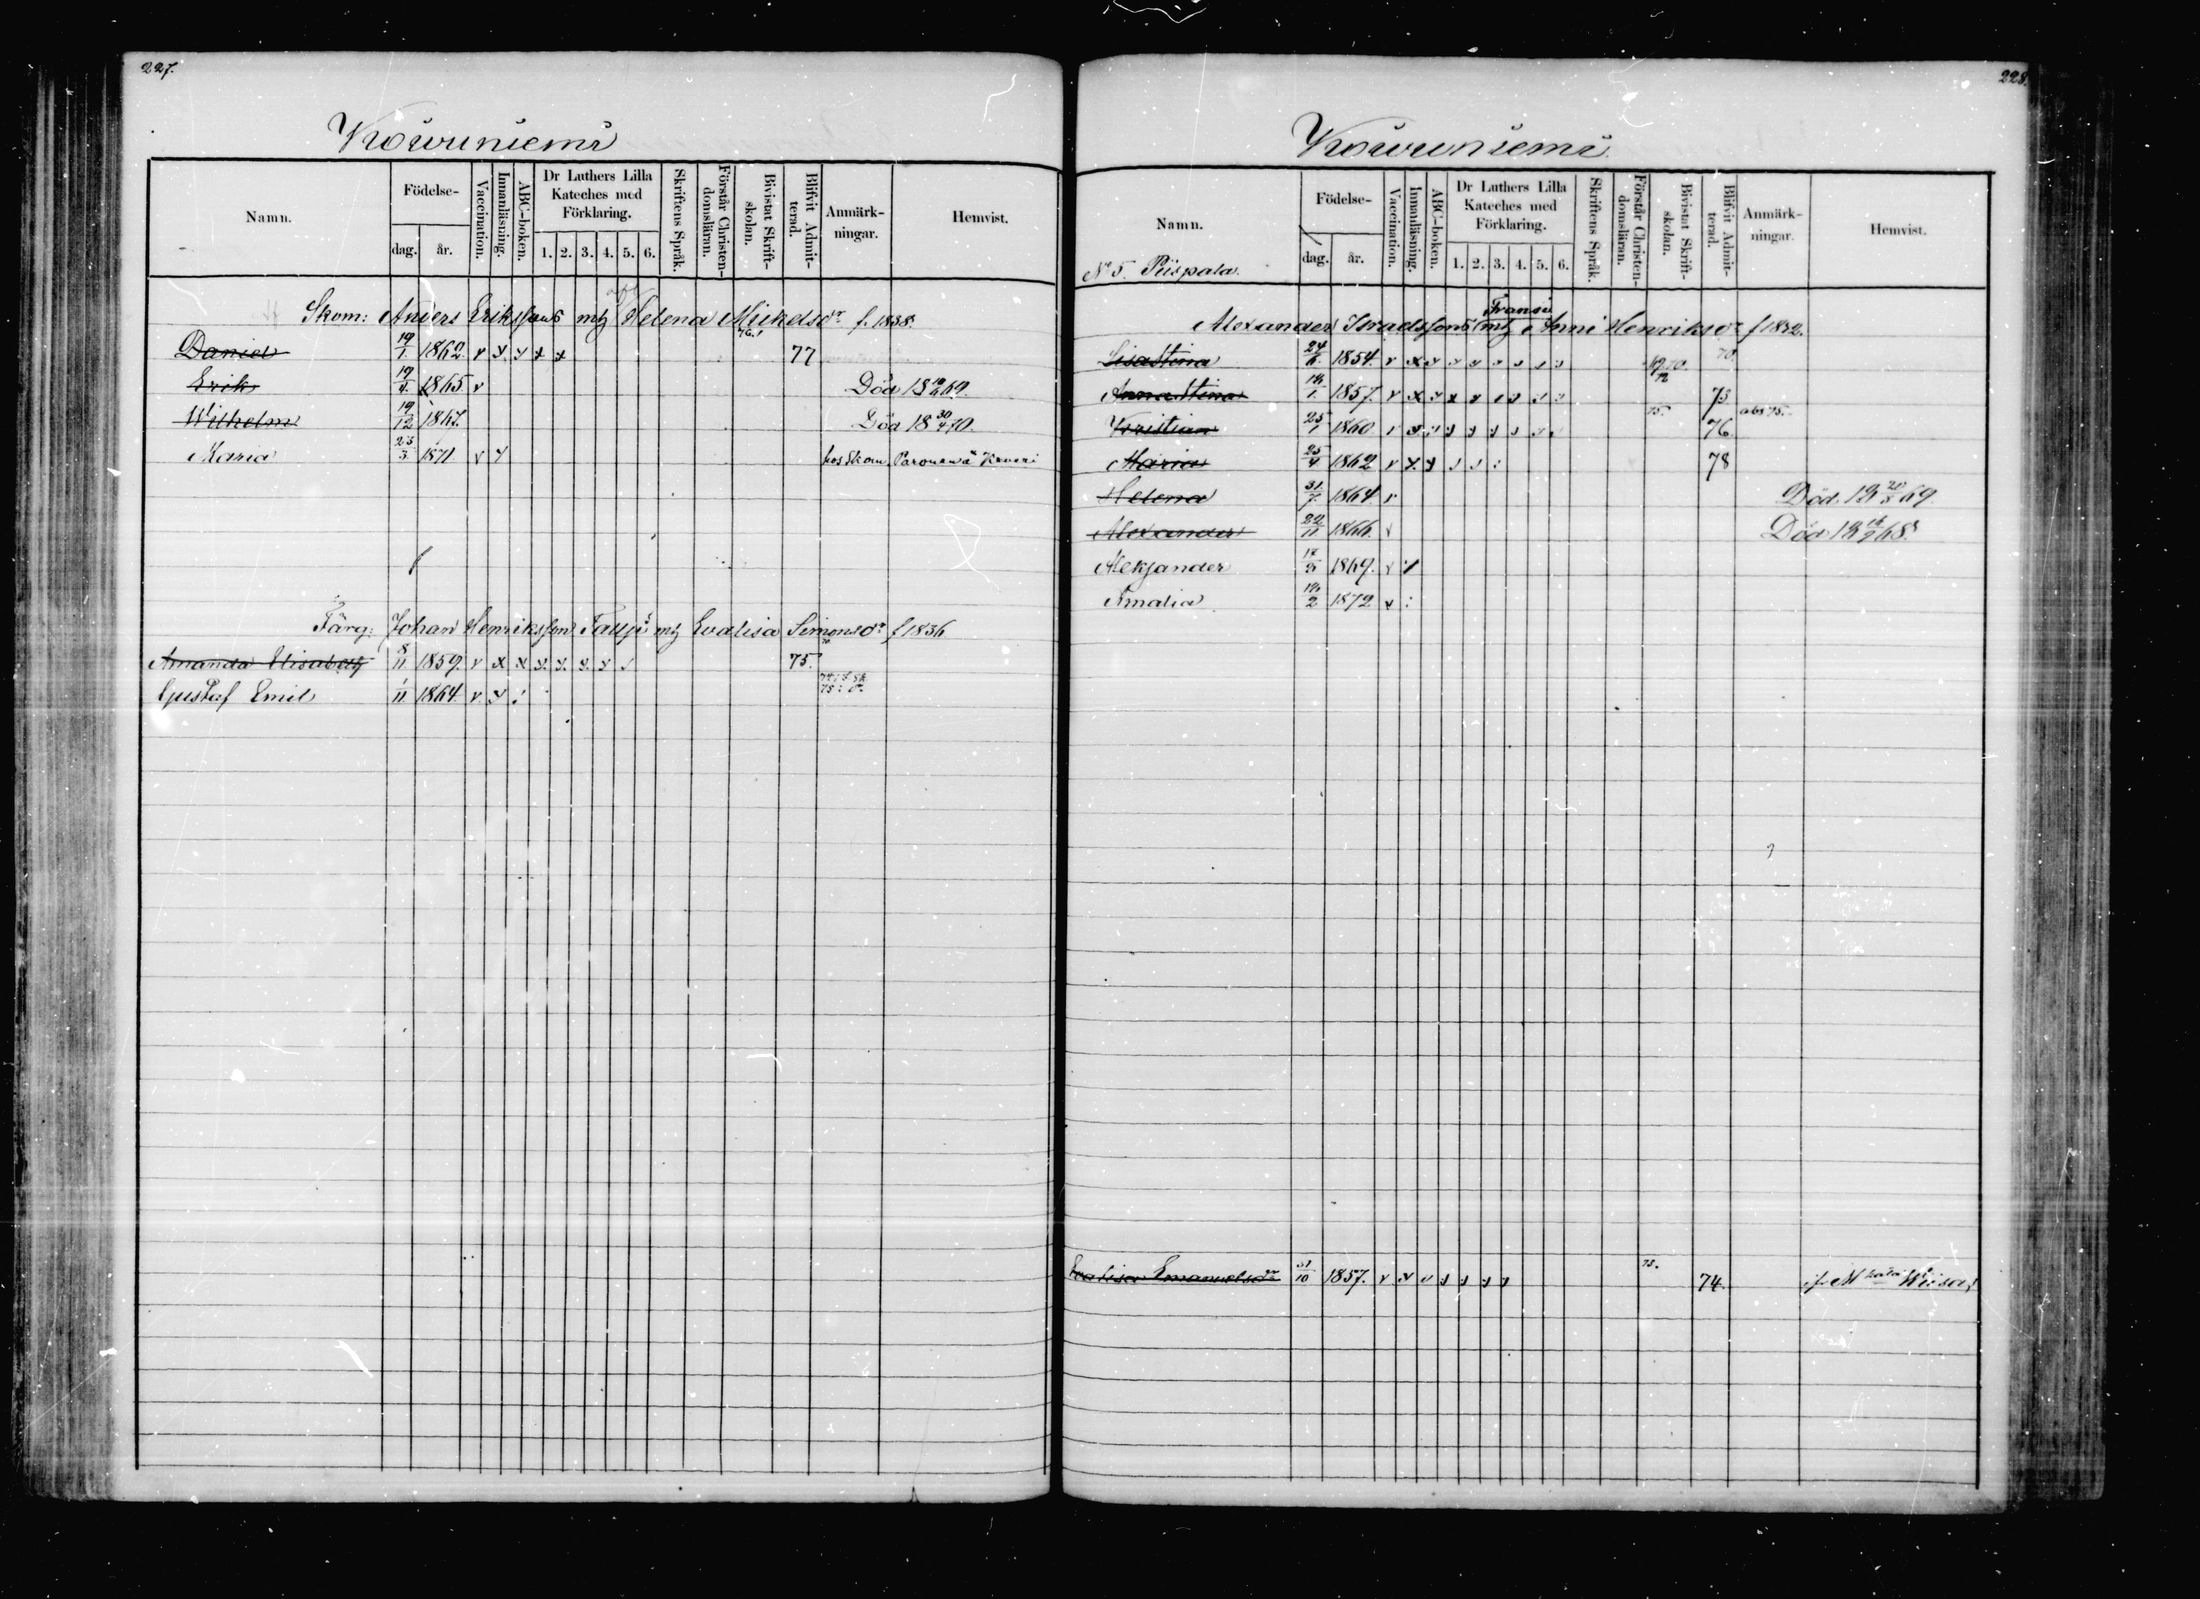 227.
Koivuniemi
Namn. Födelse- dag. år. Vaccination. Innanläsning. ABC-boken. Dr Luthers Lilla Kateches med Förklaring. 1. 2. 3. 4. 5. 6. Skriftens Språk. Förstår Christendomsläran. Bivistat Skriftskolan. Blifvit Admitterad. Anmärkningar. Hemvist.
Skom: Anders Erikssons mtz Helena Mickelsdr f. 1838.
Daniel 19/1. 1862. v x y x x 76.1 77
Erik 19/4. 1865 v Död 18 69.
Wilhelm 19/12 1867. Död 18 30/4 70.
Maria 23/3 1871. v y hos Skom.
Färg: Johan Henriksson mtz Evalisa Simonsdr f 1836
Amanda Elisabeth 8/11 1859. v x x y. y. y. y 75.
Gustaf Emil 1/11 1864 v. y
228.
Koivuniemi.
Namn. Födelse- dag. år. Vaccination. Innanläsning. ABC-boken. Dr Luthers Lilla Kateches med Förklaring. 1. 2. 3. 4. 5. 6. Skriftens Språk. Förstår Christendomsläran. Bivistat Skriftskolan. Blifvit Admitterad. Anmärkningar. Hemvist.
No 5. Piispala.
Alexander Israelssons mtz Anni Henriksdr f 1832.
Lisa Stina 24/6. 1854. v x y
Anna Stina 1857. v x y x x 73
Kristian 25/1 1860. 75. 76. abs 75.
Maria 25/4 1862 v y. y 78
Helena 31/7. 1864 v Död. 18 69.
Alexander 22/11 1866. v Död 18 68.
Aleksander 1869. v
Amalia 1872 v
Eva Lisa Emanuelsdr 31/10 1857. v x 73. 74.